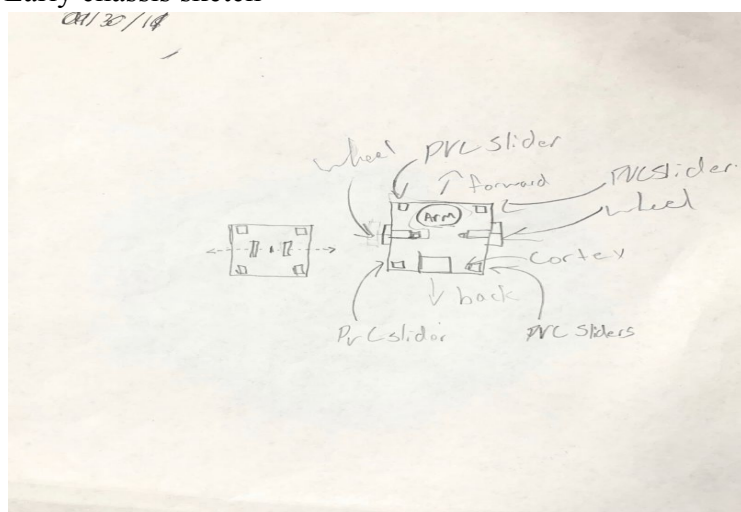 Early chassis sketch
wheel
PVC Slider
↑ forward
PVC slider
wheel
Arm
Cortex
↓ back
PVC slidor
PVC Sliders